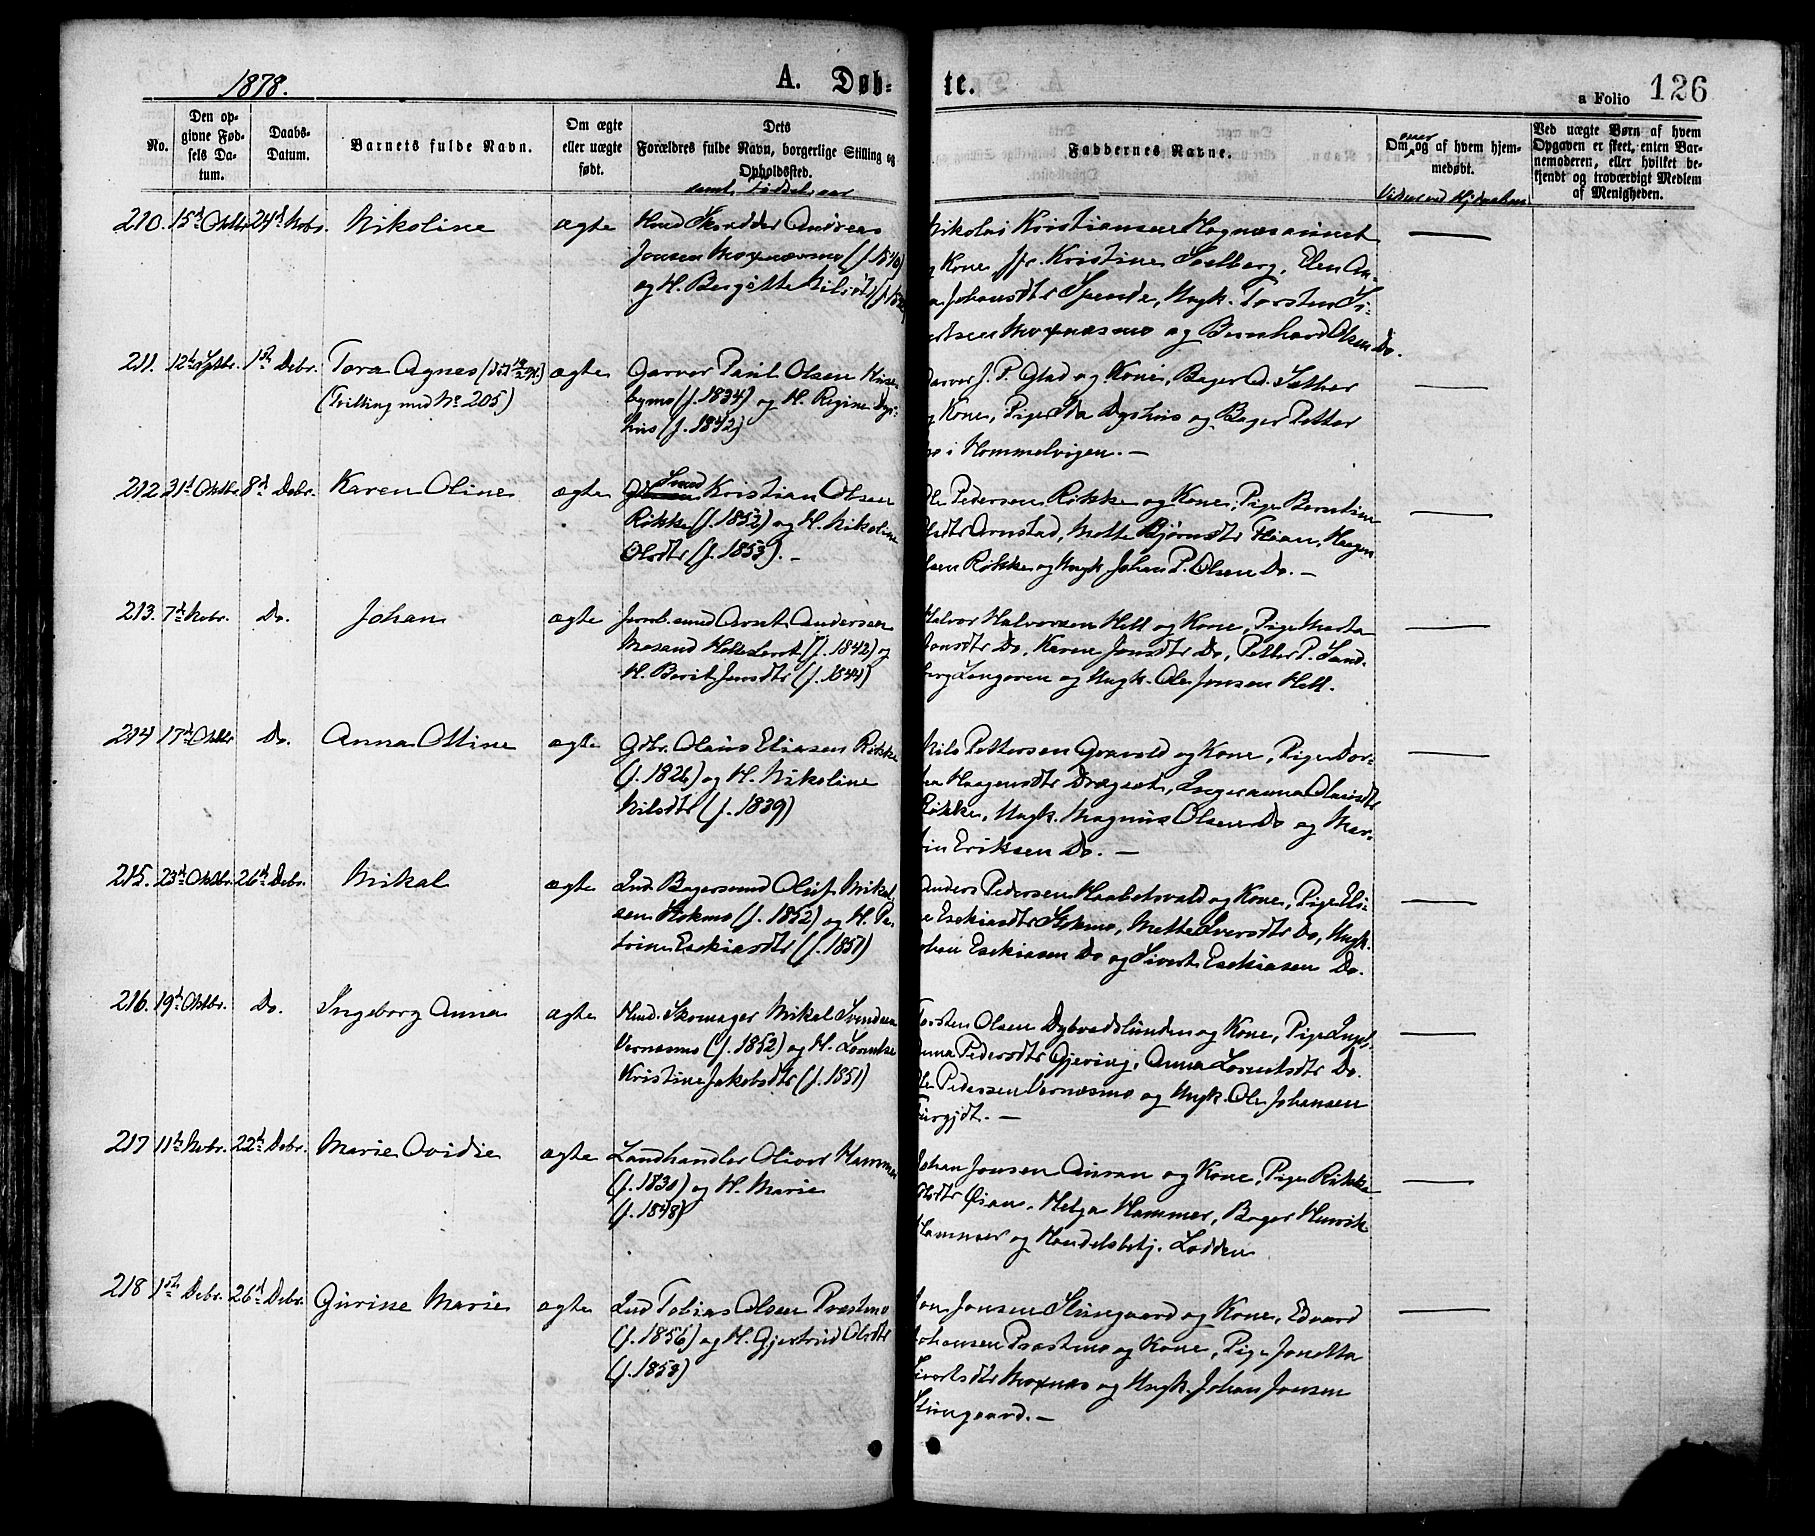 1878.
A. Døb-
te.
a Folio 126
No.
Den op-
givne Fød-
sels Da-
tum.
Daabs-
Datum.
Barnets fulde Navn.
Om ægte
eller uægte
født.
Dets
Forældres fulde Navn, borgerlige Stilling og
Opholdssted.
samt Fødselsaar
Faddernes Navne.
Om og af hvem hjem-
medøbt.
Ved uægte Børn af hvem
Opgaven er skeet, enten Bar-
nemoderen, eller hvilket be-
kjendt og troværdigt Medlem
af Menigheden.
210. 15d Oktbr 24d Novbr. Nikoline ægte Hmd Skrædder Andreas
Jonsen Moxnæsmo (f. 1840)
og H. Bergitte Nilsdtr
Nikolai Kristiansen Hognæsaunet
og Kone, Kristine Solberg, Elen An-
na Johansdtr Spende, Ungk. Torsten Si-
vertsen Moxnæsmo og Bernhard Olsen Do.
211. 12te Septbr. 1ste Debr. Tora Agnes
(Tvilling med No 205)
ægte Garver Paul Olsen Huse-
bymo (f. 1834) og H. Regine Dys-
hvis (f. 1842)
Garver J. P. Glad og Kone, Bager A. Sæther
og Kone, Pige Ida Dyshvis og Bager Petter
i Hommelvigen. —
212 31d Oktbr. 8d Debr. Karen Oline ægte Smed Kristian Olsen
Røkke (f. 1852) og H. Nikoline
Olsdtr (f. 1853). -
Ole Pedersen Røkke og Kone, Pige Berntine
Olsdtr Arnstad, Mette Bjørnsdtr Flian, Haagen
Olsen Røkke og Ungk Johan P. Olsen Do. —
213. 7d Nobr. Do. Johan ægte Jernb. smed Arnt Andersen
Mosand Helleslevet (f. 1842) og
H. Berit Jonsdtr (f. 1844)
Halvor Halvorsen Hell og Kone, Pige Marta
Jonsdtr Do, Karen Jonsdtr Do, Petter P. Sand-
berg Langøren og Ungk. Ole Jonsen Hell.
214 17d Oktbr Do. Anna Otline ægte Gdbr. Olaus Eliasen Røkke
(f. 1826) og H. Nikoline
Nilsdtr (f. 1839)
Nils Pettersen Gravold og Kone, Pige Dor-
tea Haagensdtr Dragset, Ingeranna Olausdtr
Røkke, Ungk. Magnus Olsen Do og Mar-
tin Eriksen Do. —
215. 23d Oktbr. 26d Debr. Mikal ægte Ind. Bagersvend Oluf Mikal-
sen Hokmo (f. 1852) og H. Pe-
trine Esekiasdtr (f. 1851)
Anders Pedersen Haabetsvald og Kone, Pige Eli-
ne Esekiasdtr Stokmo, Mette Iversdtr Do, Ungk.
Johan Esekiasen Do og Sivert Esekiasen Do.
216. 19d Oktbr. Do. Ingeborg Anna ægte Hmd. Skomager Mikal Svendsen
Vernæsmo (f. 1852) og H. Lorentse
Kristine Jakobsdtr (f. 1851)
Torsten Olsen Dybvadslunden og Kone, Pige Ingeb.
Anna Pedersdtr Gjering, Anna Lorntsdtr Do.
Ole Pedersen Vernæsmo og Ungk. Ole Johansen
217 11te Nobr. 22d Debr. Marie Ovidie ægte Landhandler Oliver Hammer
(f. 1830) og H. Marie
(f. 1848)
Johan Jonsen Auran og Kone, Pige Rikke
Olsdtr Øian, Helga Hammer, Bager Henrik
Hammer og Handelsbetj. Lodden
218 1ste Debr. 26d Debr. Gurine Marie ægte Ind Tobias Olsen Præstmo
(f. 1856) og H. Gjertrud Olsdtr
(f. 1853)
Jon Jonsen Stuegaard og Kone, Edvard
Johansen Præstmo og Kone, Pige Jonetta
Sivertsdtr Moxnæs og Ungk. Johan Jonsen
Stuegaard. —